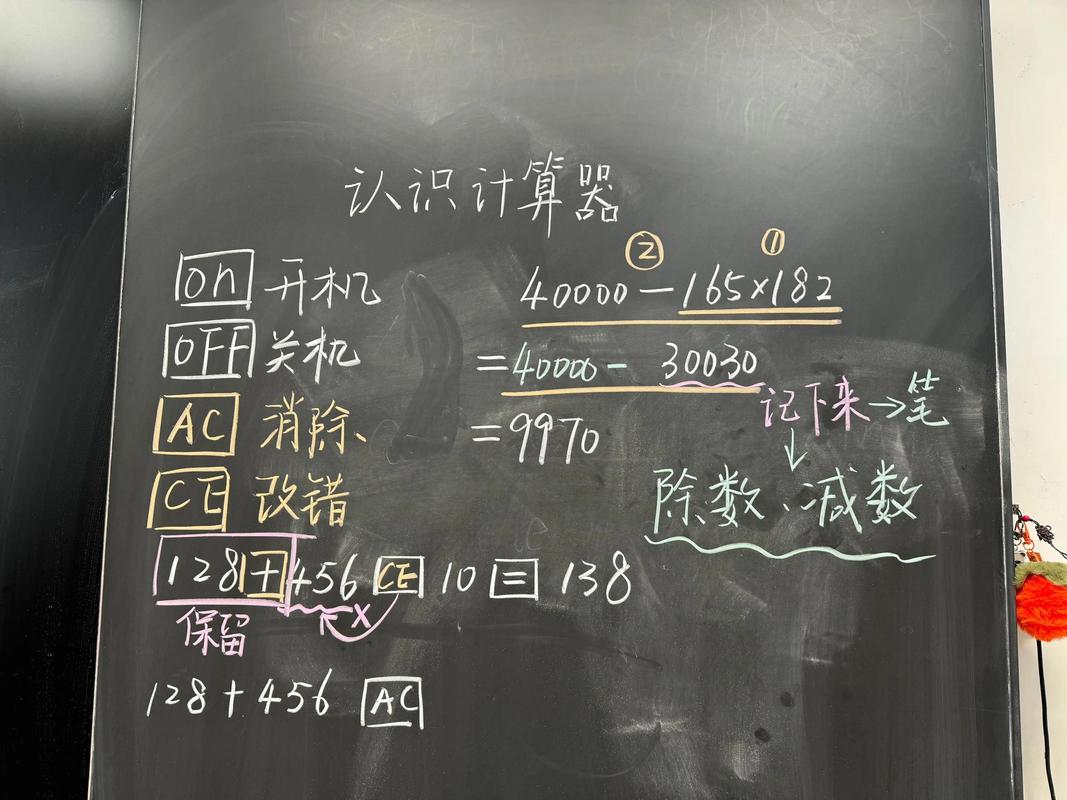 认识计算器
on 开机
OFF 关机
AC 消除
CE 改错
② ①
40000-165×182
=40000-30030
记下来→笔
↓
=9970
除数、减数
128+456 CE 10 = 138
×
保留
128+456 AC